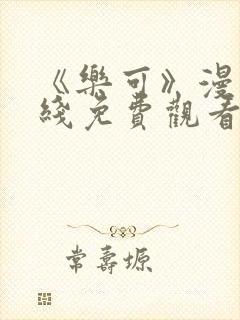 《樂可》漫
綫免費觀看
常壽塬